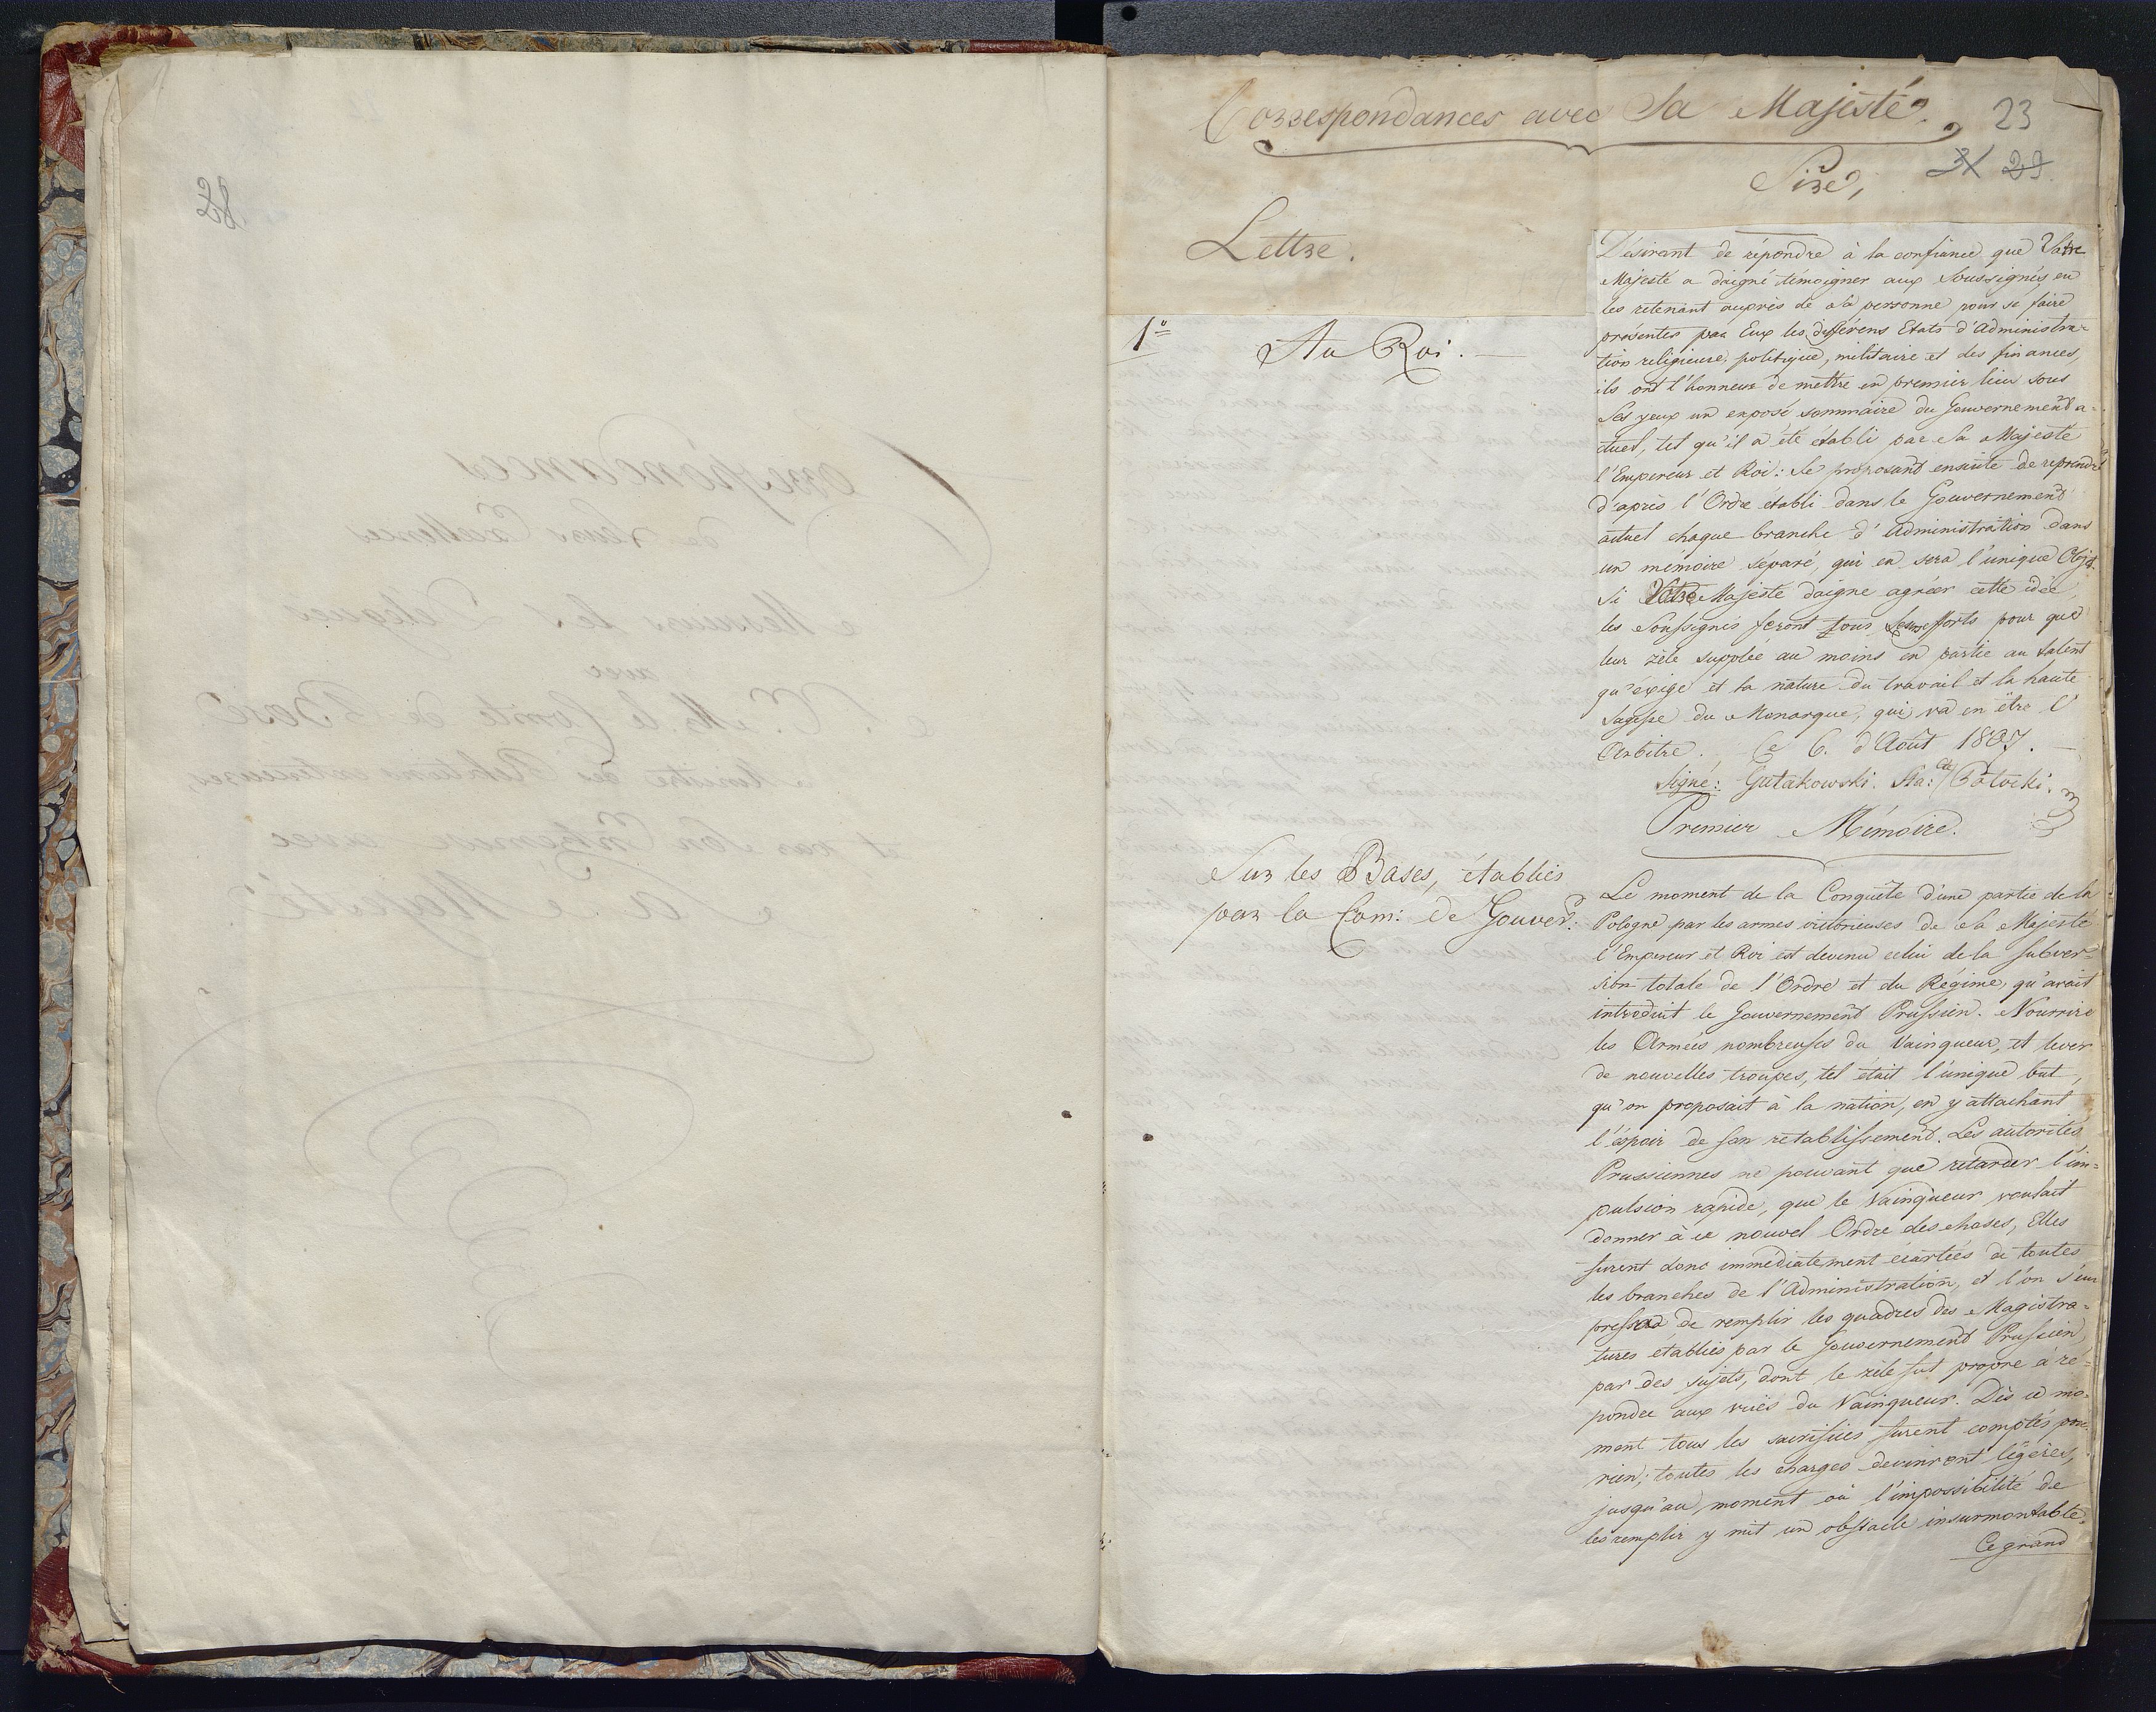 Correspondances avec Sa Majesté.
23
Sire,
31 29.
Lettre.
1º
Au Roi.
Désirant de répondre à la confiance que Votre
Majesté a daigné témoigner aux Soussignés en
les retenant auprès de Sa personne pour se faire
présenter par Eux les différens Etats d'Administra-
tion religieuse, politique, militaire et des finances,
ils ont l'honneur de mettre en premier lieu sous
Ses yeux un exposé sommaire du Gouvernement a-
ctuel, tel qu'il a été établi par Sa Majesté
l'Empereur et Roi: Se proposant ensuite de reprendre
d'après l'Ordre établi dans le Gouvernement
actuel chaque branche d'Administration dans
un mémoire séparé, qui en sera l'unique Objet.
Si Votre Majesté daigne agréer cette idée,
les Soussignés feront tous leurs efforts pour que
leur zèle supplée au moins en partie au talent
qu'exige et la nature du travail et la haute
Sagesse du Monarque, qui va en être l'
Arbitre. Ce 6. d'Août 1807.
Signé: Gutakowski. Sta: Cte Potocki.
Premier Mémoire.
Sur les Bases, établies
par la Com: de Gouver:
Le moment de la Conquête d'une partie de la
Pologne par les armes victorieuses de Sa Majesté
l'Empereur et Roi est devenu celui de la subver-
sion totale de l'Ordre et du Régime, qu'avait
introduit le Gouvernement Prussien. Nourrire
les Armées nombreuses du Vainqueur, et lever
de nouvelles troupes, tel était l'unique but,
qu'on proposait à la nation, en y attachant
l'éspoir de son rétablissement. Les autorités
Prussiennes ne pouvant que retarder l'im-
pulsion rapide, que le Vainqueur voulait
donner à ce nouvel Ordre des choses, Elles
furent donc immédiatement écartées de toutes
les branches de l'Administration, et l'on s'em
pressa de remplir les quadres des Magistra-
tures établies par le Gouvernement Prussien,
par des sujets, dont le zèle fut propre à ré-
pondre aux vües du Vainqueur. Dès ce mo-
ment tous les sacrifices furent comptés pour
rien; toutes les charges devinront légères,
jusqu'au moment où l'impossibilité de
les remplir y mit un obstacle insurmontable.
Ce grand